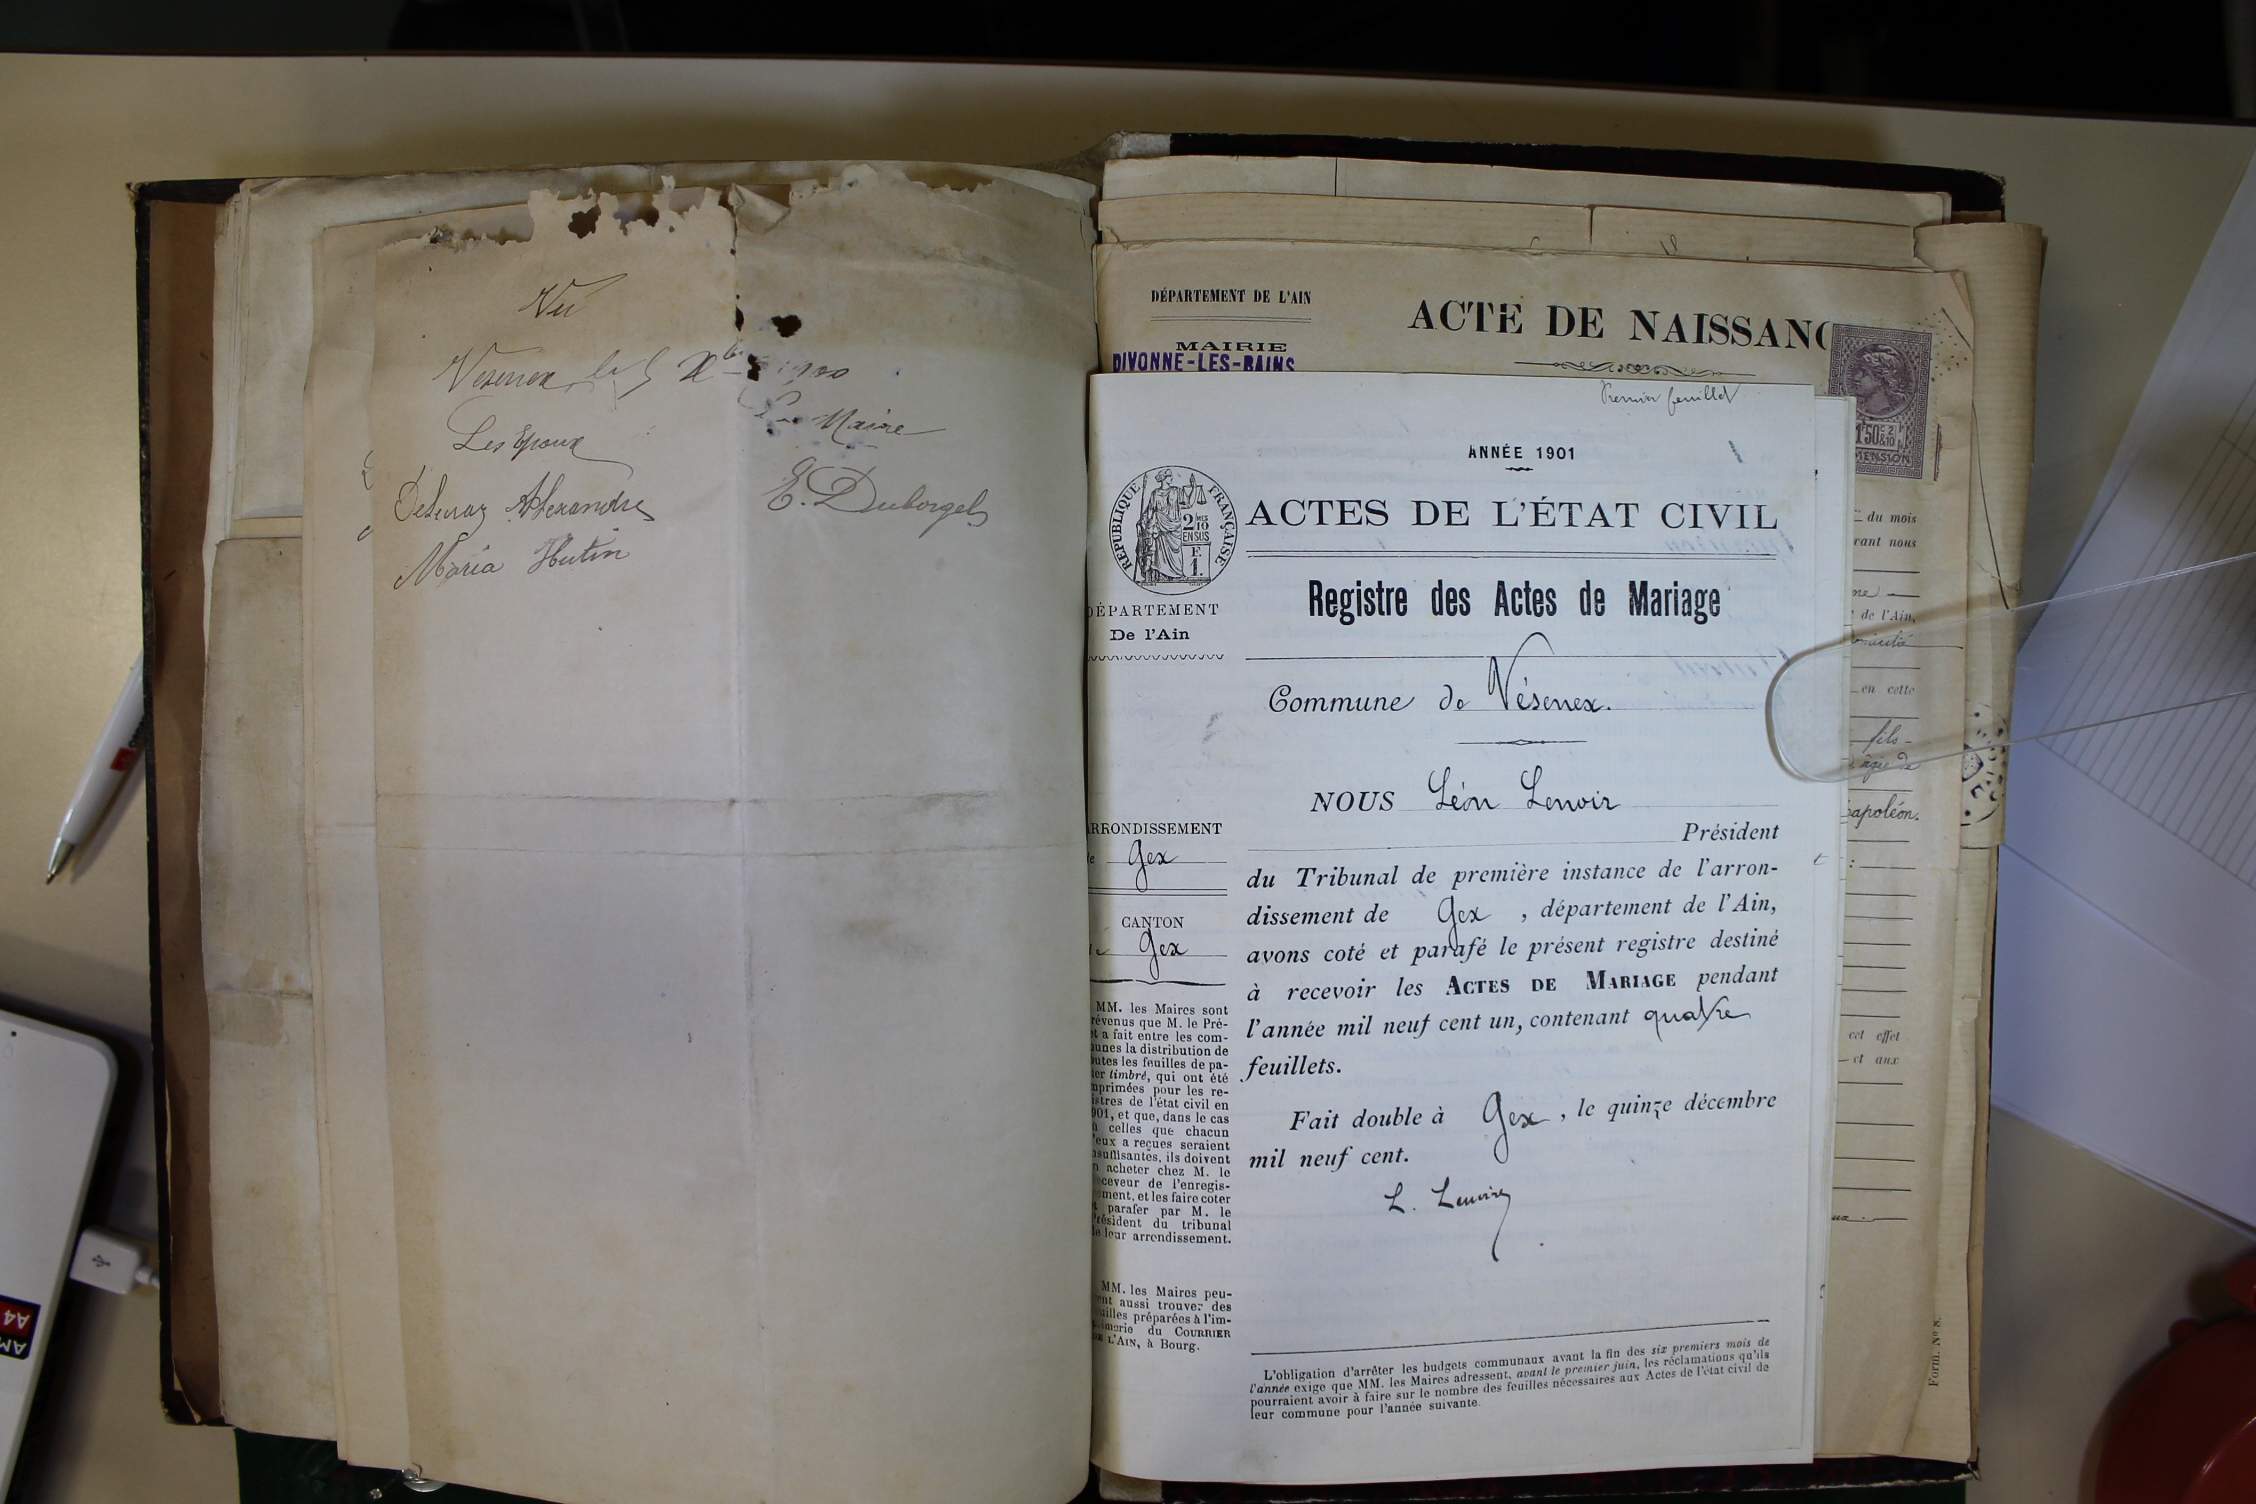 Vu
Vésenex, le 5 Xbre 1900
Les Epoux
Le Maire
Delavay Alexandre
E. Duborgel
Maria Hutin
DÉPARTEMENT DE L'AIN
ACTE DE NAISSANC
MAIRIE
DIVONNE-LES-BAINS
1F50c 2/10
DIMENSION
Premier feuillet
ANNÉE 1901
RÉPUBLIQUE FRANÇAISE
2 MES
10
EN SUS
F.
1.
ACTES DE L'ÉTAT CIVIL
Registre des Actes de Mariage
DÉPARTEMENT
De l'Ain
Commune de Vésenex.
NOUS Léon Lenoir
Président
du Tribunal de première instance de l'arron-
dissement de Gex, département de l'Ain,
avons coté et parafé le présent registre destiné
à recevoir les ACTES DE MARIAGE pendant
l'année mil neuf cent un, contenant quatre
feuillets.
Fait double à Gex, le quinze décembre
mil neuf cent.
L. Lenoir
ARRONDISSEMENT
de Gex
CANTON
de Gex
MM. les Maires sont
révenus que M. le Pré-
et a fait entre les com-
unes la distribution de
outes les feuilles de pa-
ier timbré, qui ont été
mprimées pour les re-
istres de l'état civil en
901, et que, dans le cas
ù celles que chacun
'eux a reçues seraient
nsuffisantes, ils doivent
n acheter chez M. le
eceveur de l'enregis-
ement, et les faire coter
t parafer par M. le
Président du tribunal
de leur arrondissement.
MM. les Maires peu-
ent aussi trouver des
uilles préparées à l'im-
rimerie du COURRIER
DE L'AIN, à Bourg.
L'obligation d'arrêter les budgets communaux avant la fin des six premiers mois de
l'année exige que MM. les Maires adressent, avant le premier juin, les réclamations qu'ils
pourraient avoir à faire sur le nombre des feuilles nécessaires aux Actes de l'état civil de
leur commune pour l'année suivante.
du mois
rant nous
de l'Ain,
en cette
fils
âgé de
apoléon.
cet effet
et aux
Form. N° 8.
A4